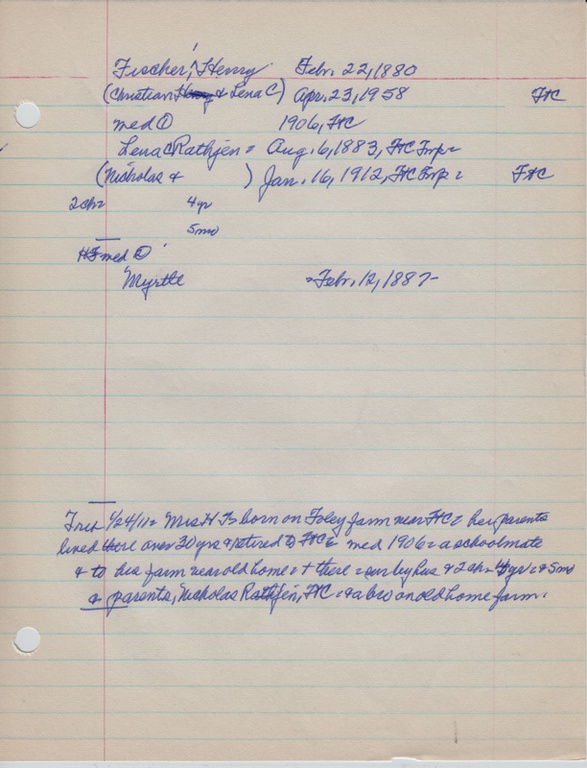 Fischer, Henry Febr. 22, 1880
(Christian Henry & Lena C) Apr. 23, 1958 FtC
med ① 1906, FtC
Lena C Rathjen = Aug. 6, 1883, FtC Twp =
(Nicholas & ) Jan. 16, 1912, FtC Twp = FtC
2 ch = 4 yr
5 mo
HF med ②
Myrtle = Febr. 12, 1887-
1/24/11 = Mrs H F born on Foley farm near FtC = her parents
lived there over 30 yrs & retired to FtC = med 1906 = a schoolmate
& to his farm near old home = + there = sur by hus & 2 ch = 4 yr = & 5 mo
& parents, Nicholas Rathjen, FtC = & a bro on old home farm.